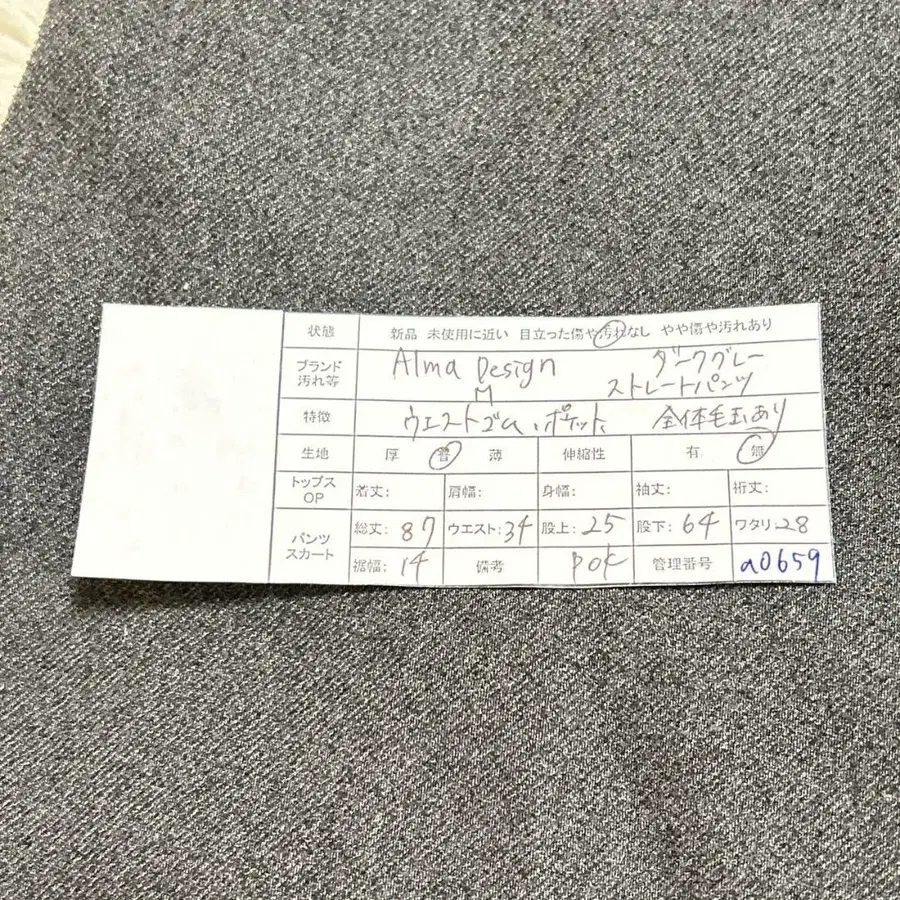 状態 新品 未使用に近い 目立った傷や汚れなし やや傷や汚れあり
ブランド 汚れ等 Alma Design ダークグレー
M ストレートパンツ
特徴 ウエストゴム、ポケット、 全体毛玉あり
生地 厚 普 薄 伸縮性 有 無
トップス OP 着丈: 肩幅: 身幅: 袖丈: 裄丈:
パンツ スカート 総丈: 87 ウエスト: 34 股上: 25 股下: 64 ワタリ: 28
裾幅: 14 備考 POK 管理番号 a0659